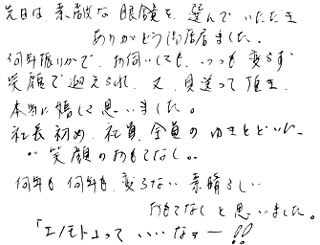 先日は素敵な眼鏡を選んでいただき
ありがとう御座居ました。
何年振りかで、お伺いしても、いつも変らず
笑顔で迎えられ、又、見送って頂き
本当に嬉しく思いました。
社長初め、社員、全員のゆきとどいた
笑顔のおもてなし。
何年も何年も、変らない素晴らしい
おもてなしと思いました。
「エノモト」って いいなァー!!